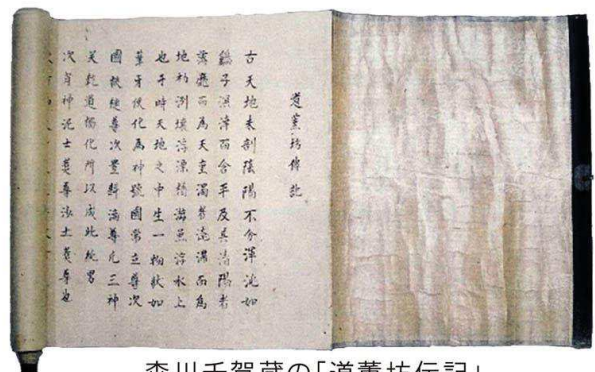 道薫坊傳記
古天地未剖陰陽不分渾沌如
鶏子溟涬而含牙及其清陽者
薄靡而為天重濁者淹滞而為
地初洲壌浮漂猶游魚浮水上
也于時天地之中生一物状如
葦牙便化為神號國常立尊次
國狭槌尊次豊斟渟尊凡三神
矣乾道獨化所以成此純男
次有神泥土煑尊沙土煑尊也
森川千賀蔵の「道薫坊伝記」